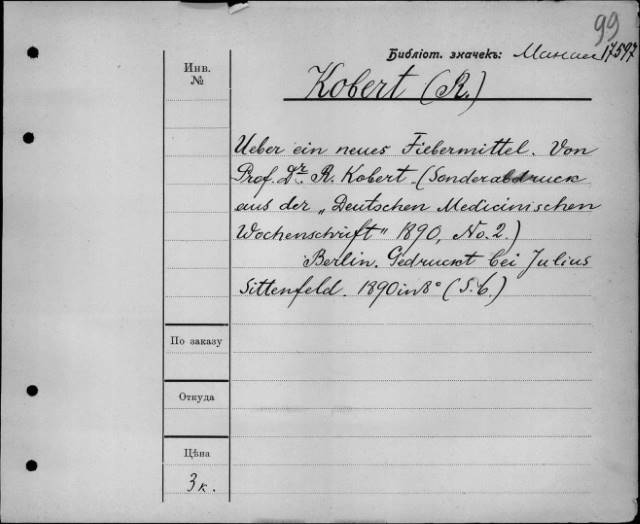 99
Библіот. значекъ: Манасс 17597
Инв.
№
Kobert (R.)
Ueber ein neues Fiebermittel. Von
Prof. Dr. R. Kobert. (Sonderabdruck
aus der „Deutschen Medicinischen
Wochenschrift" 1890, No. 2.)
Berlin. Gedruckt bei Julius
Sittenfeld. 1890 in 8° (S. 6.)
По заказу
Откуда
Цѣна
3 к.